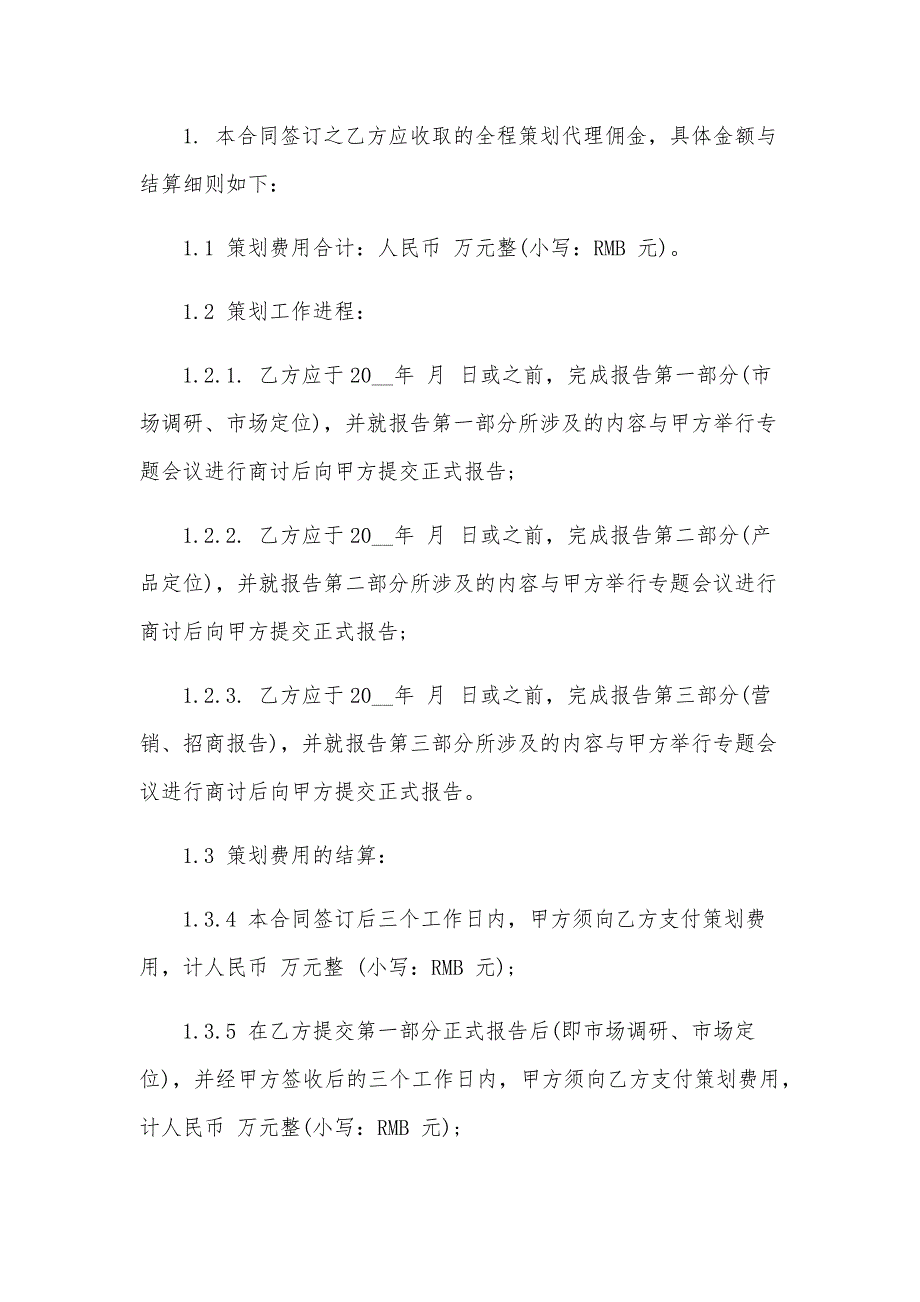 1. 本合同签订之乙方应收取的全程策划代理佣金，具体金额与
结算细则如下：
1.1 策划费用合计：人民币 万元整(小写：RMB 元)。
1.2 策划工作进程：
1.2.1. 乙方应于20__年 月 日或之前，完成报告第一部分(市
场调研、市场定位)，并就报告第一部分所涉及的内容与甲方举行专
题会议进行商讨后向甲方提交正式报告;
1.2.2. 乙方应于20__年 月 日或之前，完成报告第二部分(产
品定位)，并就报告第二部分所涉及的内容与甲方举行专题会议进行
商讨后向甲方提交正式报告;
1.2.3. 乙方应于20__年 月 日或之前，完成报告第三部分(营
销、招商报告)，并就报告第三部分所涉及的内容与甲方举行专题会
议进行商讨后向甲方提交正式报告。
1.3 策划费用的结算：
1.3.4 本合同签订后三个工作日内，甲方须向乙方支付策划费
用，计人民币 万元整 (小写：RMB 元);
1.3.5 在乙方提交第一部分正式报告后(即市场调研、市场定
位)，并经甲方签收后的三个工作日内，甲方须向乙方支付策划费用，
计人民币 万元整(小写：RMB 元);